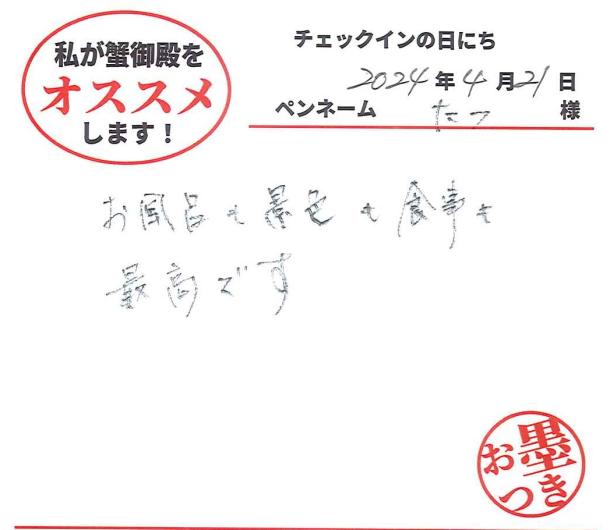 私が蟹御殿を
オススメ
します！
チェックインの日にち
2024年4月21日
ペンネーム たつ 様
お風呂も景色も食事も
最高です
お墨つき